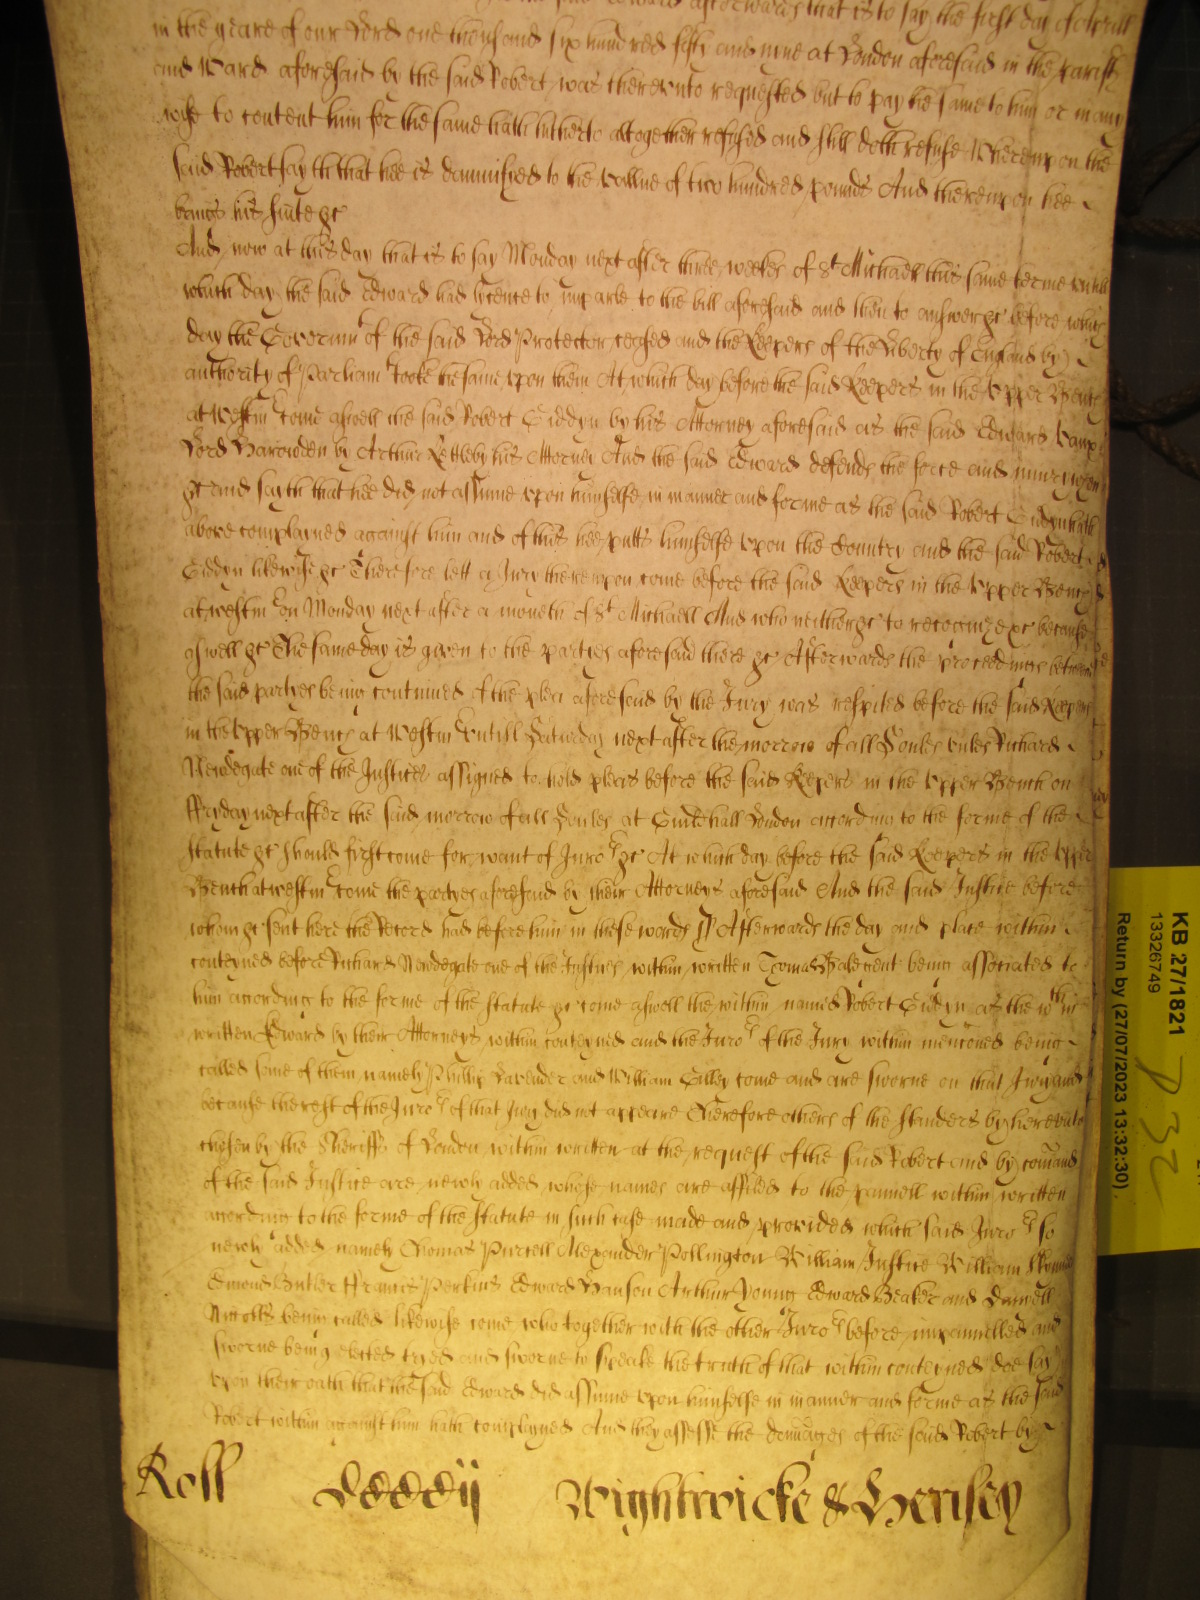 the said Edward afterwards that is to say the first day of Aprill
in the yeare of our Lord one thousand six hundred fifty and nine at London aforesaid in the parish
and Ward aforesaid by the said Robert was thereunto requested but to pay the same to him or in any
wise to content him for the same hath hitherto altogether refused and still doth refuse Whereupon the
said Robert sayth that hee is damnified to the vallue of two hundred pounds And thereupon hee
brings his suite &c
And now at this day that is to say Monday next after three weekes of St Michaell this same terme untill
which day the said Edward had lycence to imparle to the bill aforesaid and then to answer &c before which
day the Governmt of the said Lord Protector ceased and the Keepers of the Liberty of England by
authority of Parliamt tooke the same upon them At which day before the said Keepers in the Upper Bench
at Westmr come aswell the said Robert Giddyn by his Attorney aforesaid as the said Edward Vaux
Lord Harowden by Arthur Kettleby his Attorney And the said Edward defends the force and iniury when
&c and sayth that hee did not assume upon himselfe in manner and forme as the said Robert Giddyn hath
above complayned against him and of this hee putts himselfe upon the Country and the said Robert
Giddyn likewise &c Therefore lett a Jury thereupon come before the said Keepers in the Upper Bench
at Westmr on Monday next after a moneth of St Michaell And who neither &c to recognize &c because
aswell &c The same day is given to the partyes aforesaid there &c Afterwards the proceedings betweene
the said partyes being continued of the plea aforesaid by the Jury was respited before the said Keepers
in the Upper Bench at Westmr untill Saturday next after the morrow of all Soules unles Richard
Newdegate one of the Justices assigned to hold pleas before the said Keepers in the Upper Bench on
ffryday next after the said morrow of all Soules at Guildhall London according to the forme of the
statute &c should first come for want of Juror &c At which day before the said Keepers in the Upper
Bench at Westmr come the partyes aforesaid by their Attorneys aforesaid And the said Justice before
whom &c sent here the Record had before him in these words ss Afterwards the day and place within
conteyned before Richard Newdegate one of the Justices within written Thomas gent being associated to
him according to the forme of the Statute &c come aswell the within named Robert Giddyn as the wthin
written Edward by their Attorneys within conteyned and the Juror of the Jury within mencioned being
called some of them namely Phillip Lavender and William come and are sworne on that Jury and
because the rest of the Juror of that Jury did not appeare Therefore others of the standers by hereunto
chosen by the Sheriffs of London within written at the request of the said Robert and by comand
of the said Justice are newly added whose names are affiled to the pannell within written
according to the forme of the statute in such case made and provided which said Juror so
newly added namely Thomas Purcell Alexander Pollington William Justice William
Edmond Butler ffrancis Perkins Edward Hanson Arthur Young Edward Beaker and
Nicolls being called likewise come who together with the other Juror before impannelled and
sworne being elected tryed and sworne to speake the truth of that within conteyned doe say
upon their oath that the said Edward did assume upon himselfe in manner and forme as the said
Robert within against him hath complayned And they assesse the damages of the said Robert by
Roll Wightwicke & Herlsey
KB 27/1821
13326749
Return by (27/07/2023 13:32:30)
P 32